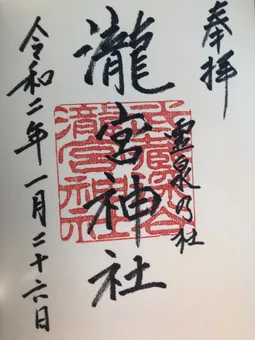 奉拝
霊泉乃社
瀧宮神社
武蔵深谷
瀧宮神社
令和二年一月二十六日